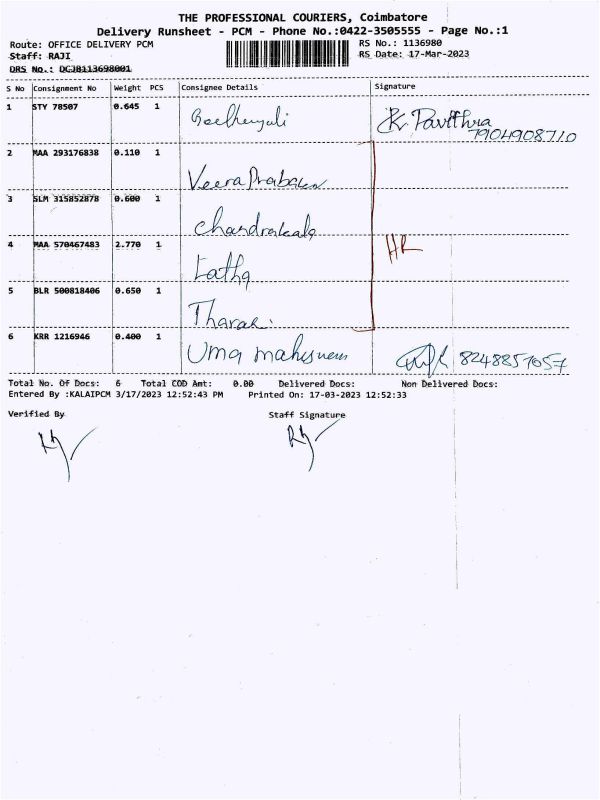 THE PROFESSIONAL COURIERS, Coimbatore
Delivery Runsheet - PCM - Phone No.:0422-3505555 - Page No.:1
Route: OFFICE DELIVERY PCM RS No.: 1136980
Staff: RAJI RS Date: 17-Mar-2023
DRS No.: DCJB113698001
S No Consignment No Weight PCS Consignee Details Signature
1 STY 78507 0.645 1 K Pavithra
7904908710
2 MAA 293176838 0.110 1
Veera Prabakan
3 SLM 315852878 0.600 1
Chandrakala
4 MAA 570467483 2.770 1 HR
Latha
5 BLR 500818406 0.650 1
Tharak.
6 KRR 1216946 0.400 1 Uma 8248857057
Total No. Of Docs: 6 Total COD Amt: 0.00 Delivered Docs: Non Delivered Docs:
Entered By :KALAIPCM 3/17/2023 12:52:43 PM Printed On: 17-03-2023 12:52:33
Verified By Staff Signature